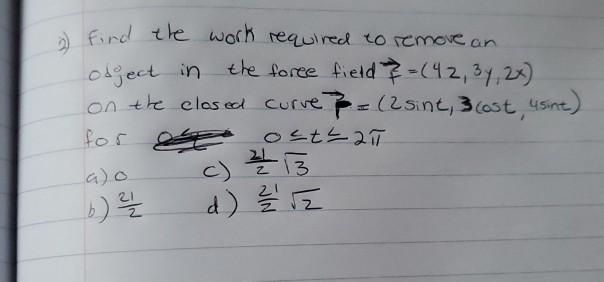 2) Find the work required to remove an
object in the force field F = (4z, 3y, 2x)
on the closed curve r = (2 sint, 3 cost, 4 sint)
for 0 ≤ t ≤ 2π
a) 0 c) 21/2 √3
b) 21/2 d) 21/2 √2